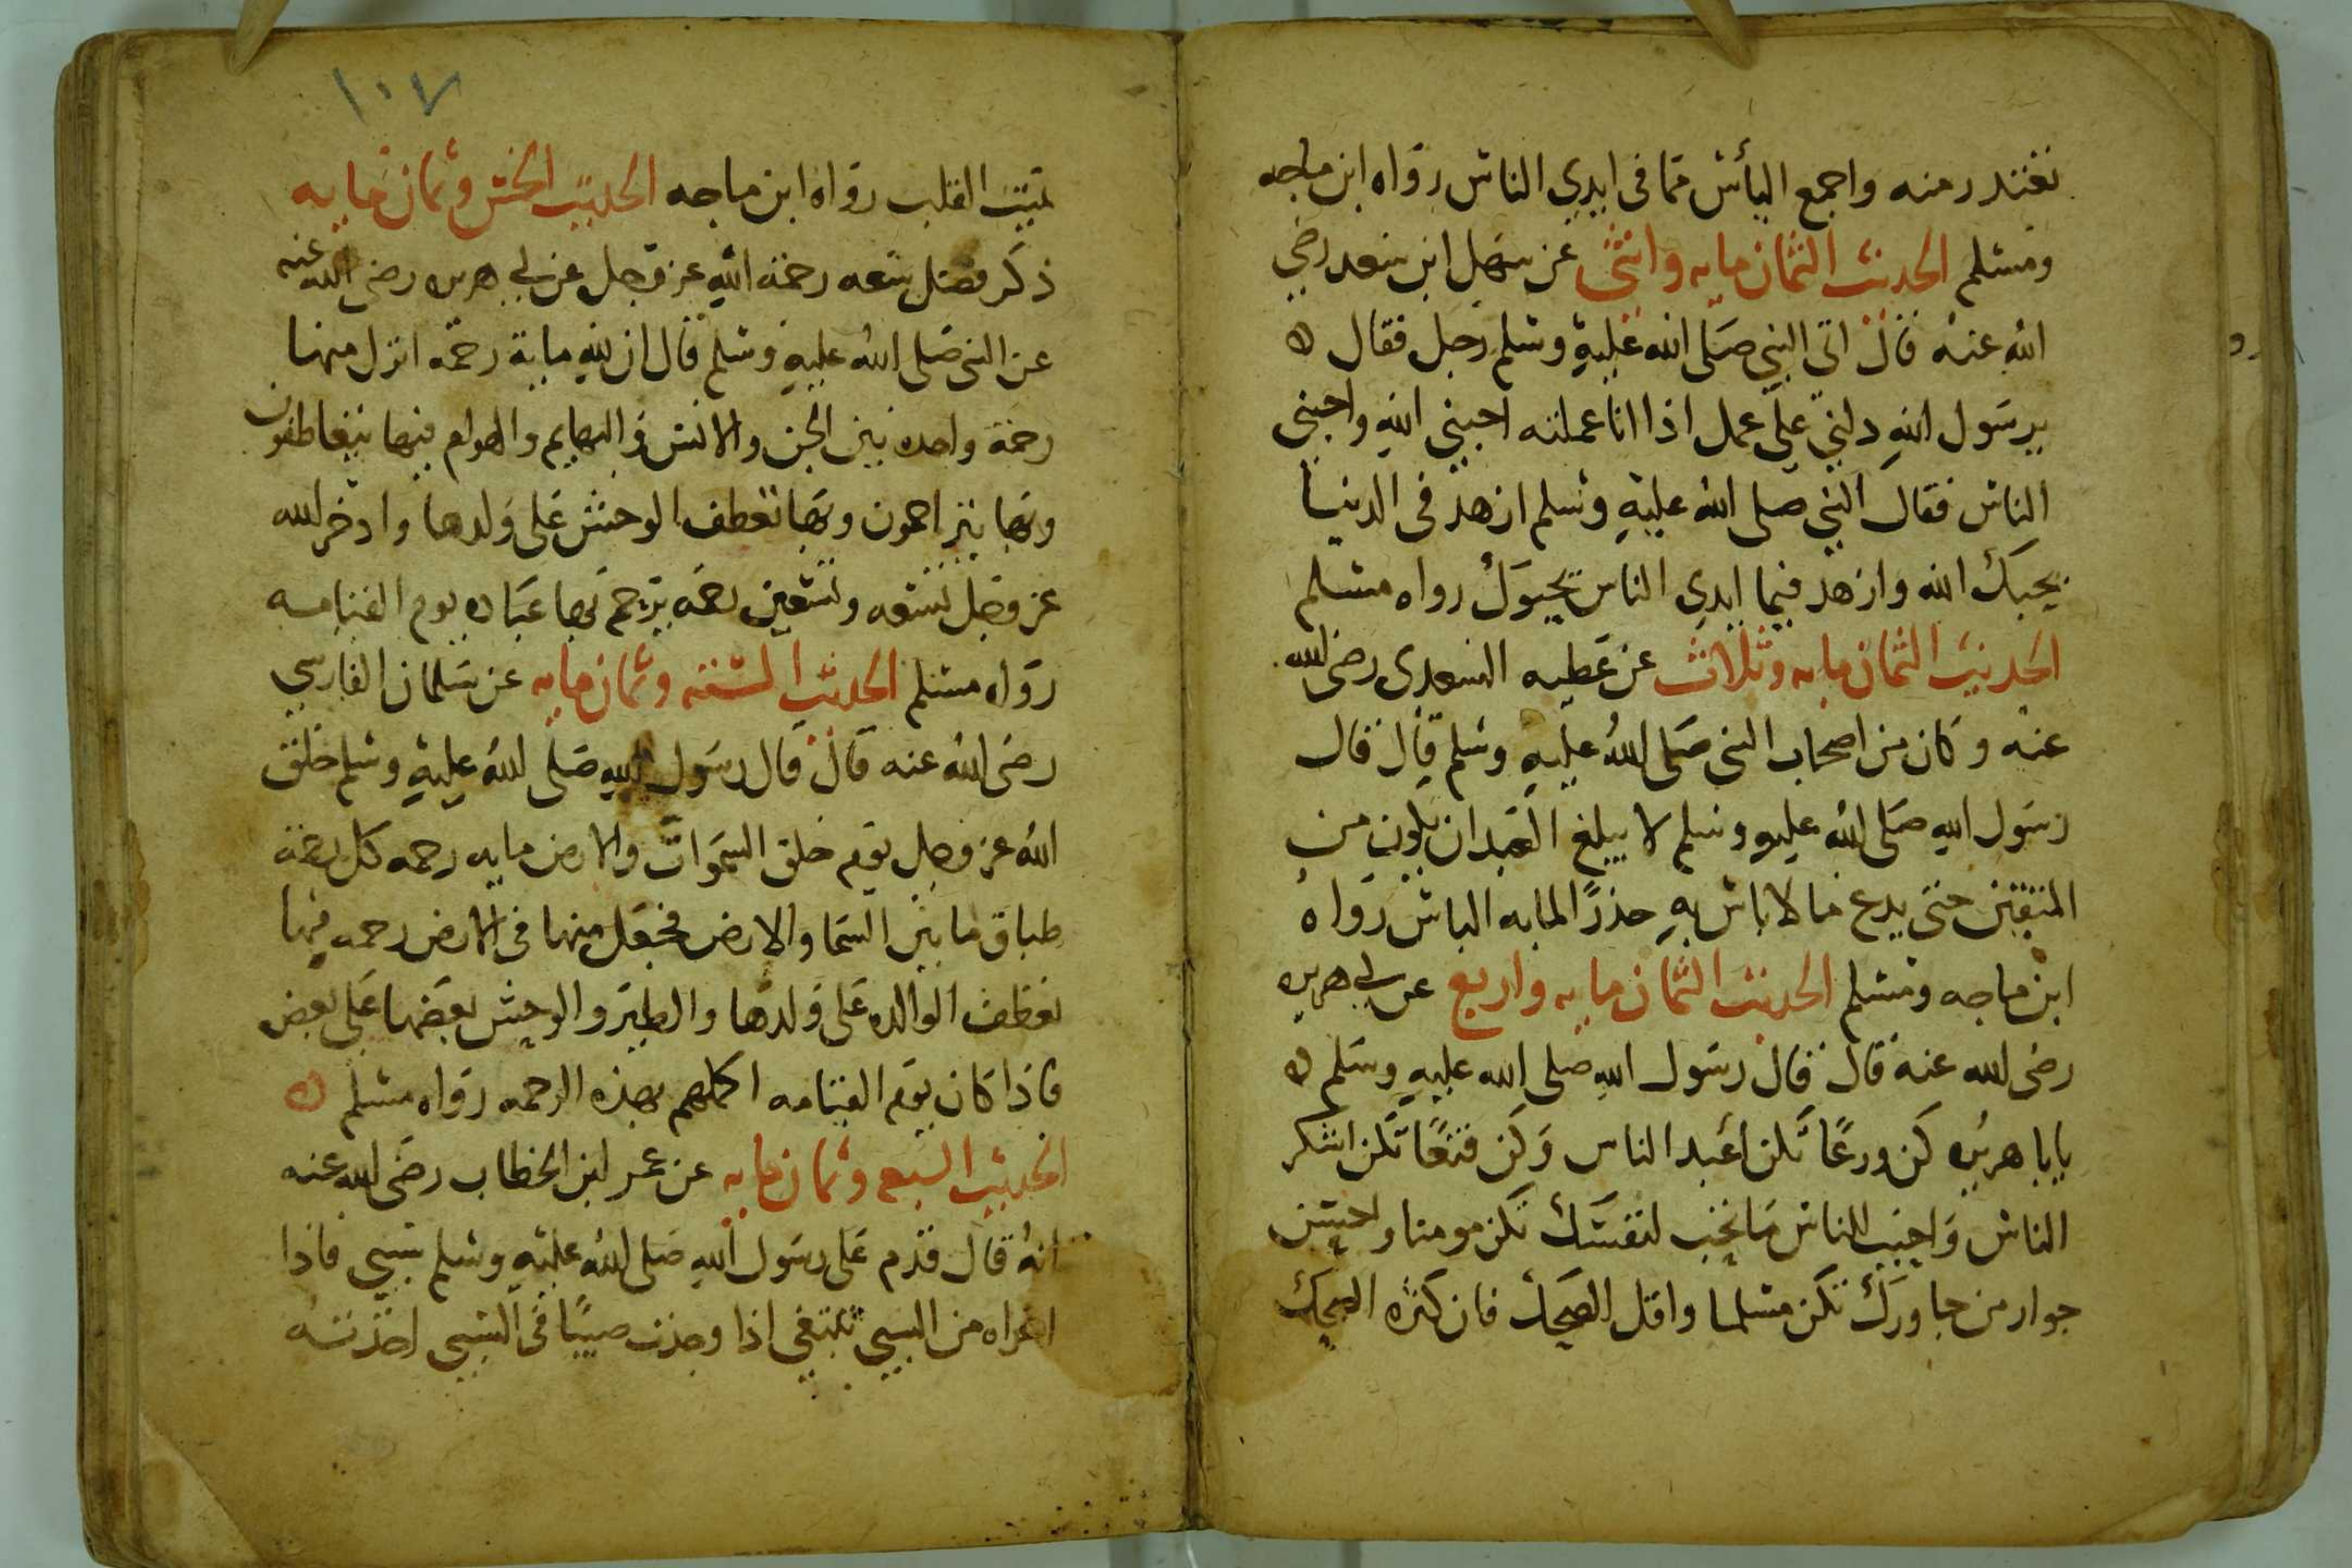 تعتذر منه واجمع اليأس مما في ايدي الناس رواه ابن ماجه
ومسلم الحديث الثمان مايه واثنى عن سهل ابن سعد رضي
الله عنه قال اتى النبي صلى الله عليه وسلم رجل فقال ه
يرسول الله دلني على عمل اذا انا عملته احبني الله واحبني
الناس فقال النبي صلى الله عليه وسلم ازهد في الدنيا
يحبك الله وازهد فيما ايدي الناس يحبوك رواه مسلم
الحديث الثمان مايه وثلاث عن عطيه السعدي رضي الله
عنه وكان من اصحاب النبي صلى الله عليه وسلم قال قال
رسول الله صلى الله عليه وسلم لا يبلغ العبد ان يكون من
المتقين حتى يدع ما لا باس به حذرًا لما به الباس رواه
ابن ماجه ومسلم الحديث الثمان مايه واربع عن ابي هريره
رضي الله عنه قال قال رسول الله صلى الله عليه وسلم ه
يابا هريره كن ورعًا تكن اعبد الناس وكن قنعًا تكن اشكر
الناس واحبب للناس ما تحب لنفسك تكن مومنا واحسن
جوار من جاورك تكن مسلما واقل الضحك فان كثره الضحك
١٠٧
تميت القلب رواه ابن ماجه الحديث الخمس وثمان مايه
ذكر فضل سعه رحمة الله عز وجل عن ابي هريره رضي الله عنه
عن النبي صلى الله عليه وسلم قال ان لله ماية رحمه انزل منها
رحمة واحده بين الجن والانس والبهايم والهوام فبها يتعاطفون
وبها يتراحمون وبها تعطف الوحش على ولدها وادخر الله
عز وجل تسعه وتسعين رحمه يرحم بها عباده يوم القيامه
رواه مسلم الحديث الستة وثمان مايه عن سلمان الفارسي
رضي الله عنه قال قال رسول الله صلى الله عليه وسلم خلق
الله عز وجل يوم خلق السموات والارض مايه رحمه كل رحمة
طباق ما بين السما والارض فجعل منها في الارض رحمه فبها
تعطف الوالده على ولدها والطير والوحش بعضها على بعض
فاذا كان يوم القيامه اكملهم بهذه الرحمه رواه مسلم ه
الحديث السبع وثمان مايه عن عمر ابن الخطاب رضي الله عنه
انه قال قدم على رسول الله صلى الله عليه وسلم بسبي فاذا
امراه من السبي تبتغي اذا وجدت صبيًا في السبي اخذته